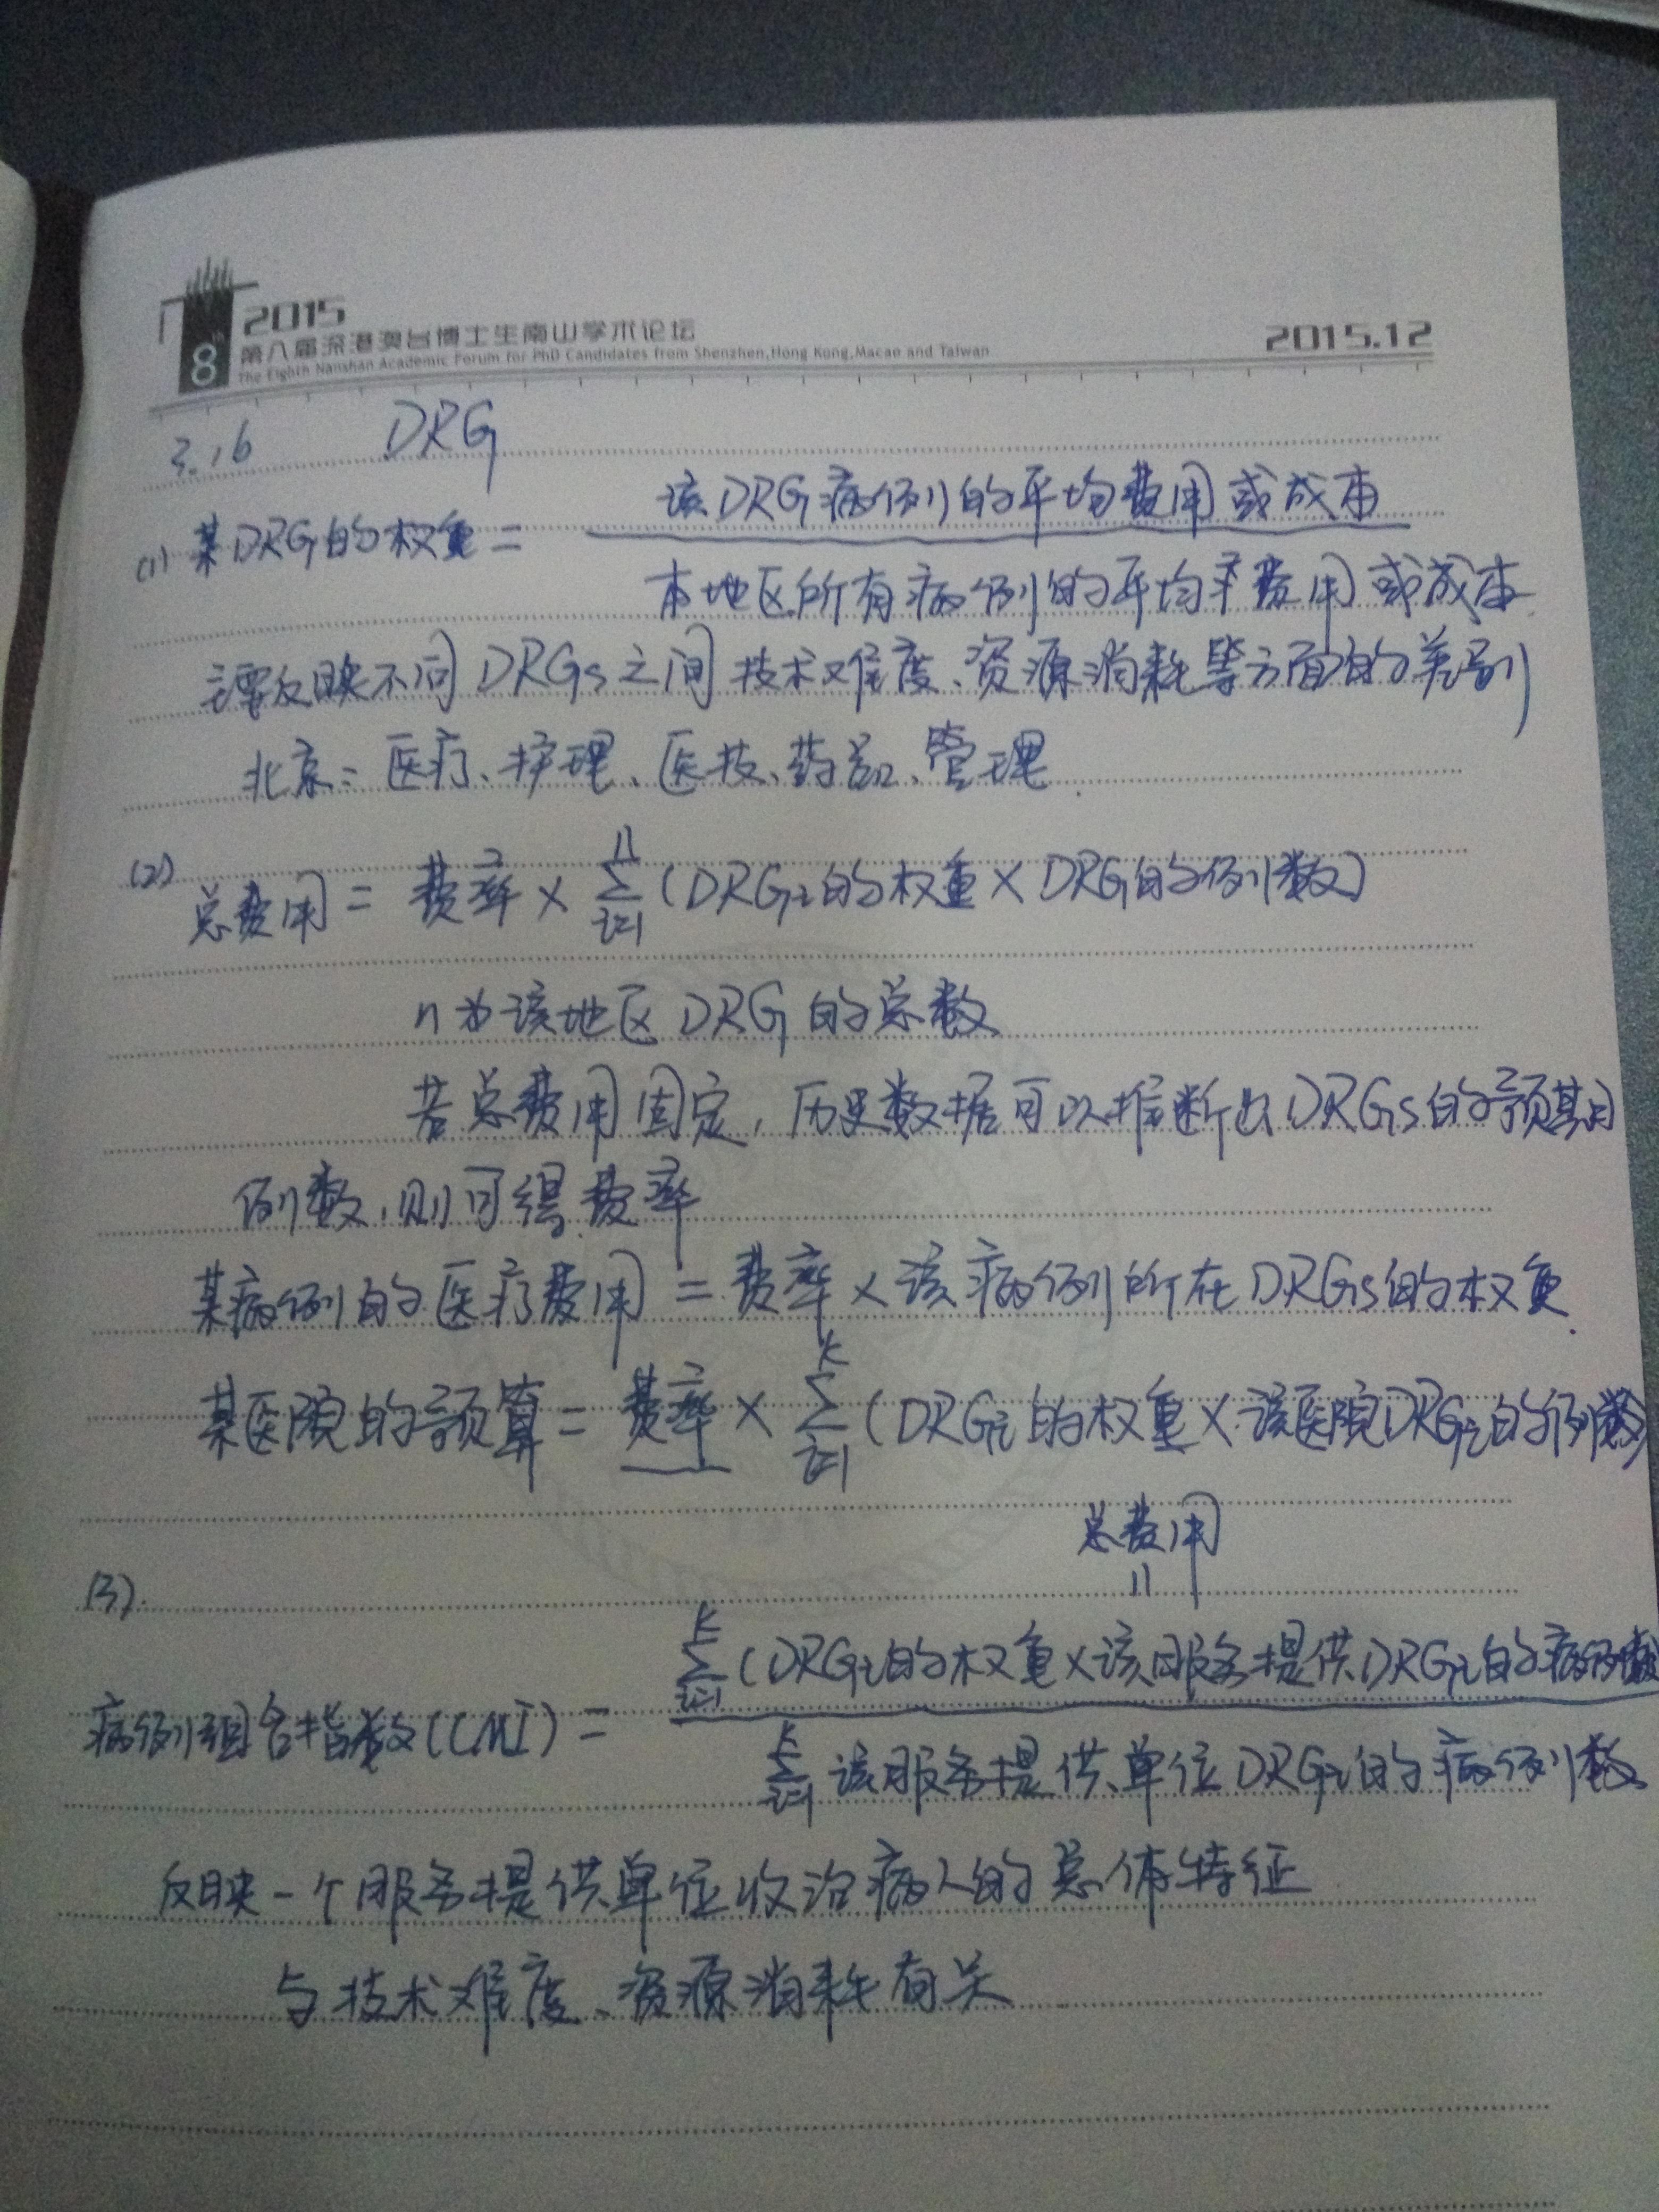 2015
8th
第八届深港澳台博士生南山学术论坛
The Eighth Nanshan Academic Forum for PhD Candidates from Shenzhen,Hong Kong,Macao and Taiwan
2015.12
3.16 DRG
该DRG病例的平均费用或成本
(1) 某DRG的权重 =
本地区所有病例的平均费用或成本
主要反映不同DRGs之间技术难度、资源消耗等方面的差别
北京：医疗、护理、医技、药品、管理
(2)
总费用 = 费率 × n∑i=1 (DRGi的权重 × DRG的例数)
n为该地区DRG的总数
若总费用固定，历史数据可以推断出DRGs的预期
例数，则可得费率
某病例的医疗费用 = 费率 × 该病例所在DRGs的权重
某医院的预算 = 费率 × k∑i=1 (DRGi的权重 × 该医院DRGi的例数)
总费用
||
(3).
k∑i=1 (DRGi的权重×该服务提供DRGi的病例数
病例组合指数(CMI) =
k∑i=1 该服务提供单位DRGi的病例数
反映一个服务提供单位收治病人的总体特征
与技术难度、资源消耗有关